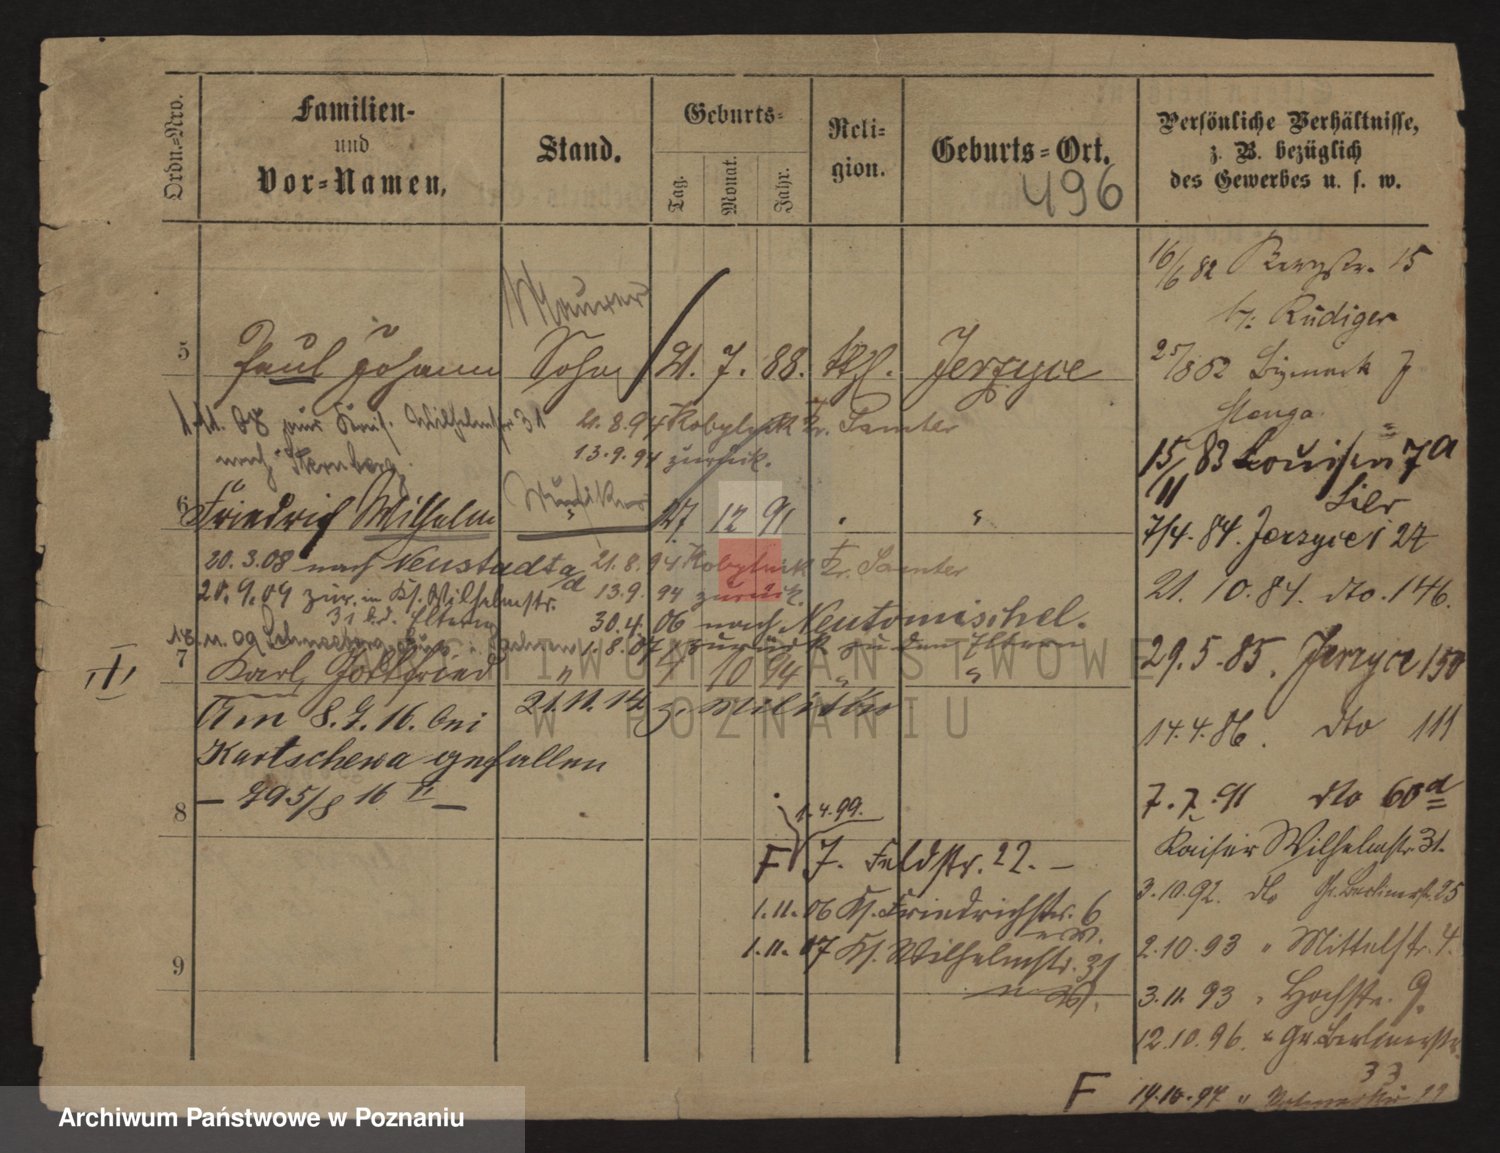 Ordn.-Nro.
Familien-
und
Vor-Namen.
Stand.
Geburts-
Tag.
Monat.
Jahr.
Reli-
gion.
Geburts-Ort.
496
Persönliche Verhältnisse,
z. B. bezüglich
des Gewerbes u. s. w.
Maurer
5 Paul Johann Sohn 21. 7. 88. kth. Jerzyce
1.11.08 Wilhelmstr 31 21.8.94 Kobylnik Kr. Samter
nach Sternberg. 13.9.94 zurück.
Musiker
6 Friedrich Wilhelm " 27. 12 91 " "
20.3.08 nach Neustadt a/d 21.8.94 Kobylnik Kr. Samter
28.9.09 zur. in K. Wilhelmstr. 13.9.94 zurück.
31 b.d. Eltern 30.4.06 nach Neutomischel.
1.8.07 zurück zu den Eltern
7 Karl Gottfried " 4 10 94 " "
III
Am 8.9.16. bei 21.11.14 z. Militär
Kartschewa gefallen
— 795/8 16 II —
8
1.4.99.
F J. Feldstr. 22. —
1.11.06 K. Friedrichstr. 6
1.11.07 K. Wilhelmstr. 31
9
16/6 82 Bergstr. 15
b: Rüdiger
25/8 82 Bismarck 7
Stenga
15/11 83 Louisen 7a
7/4. 84. Jerzyce 127
21. 10. 84. dto. 146.
29. 5. 85. Jerzyce 150
14. 4. 86. dto 111
7. 7. 91 dto 60d
Kaiser Wilhelmstr. 31.
3.10.92. dto Gr. Berlinerstr. 25
2.10.93 " Mittelstr. 4.
3.11.93 " Hochstr. 9.
12.10.96. " Gr. Berlinerstr.
33
F 14.10.97 "
ARCHIWUM PAŃSTWOWE
W POZNANIU
Archiwum Państwowe w Poznaniu